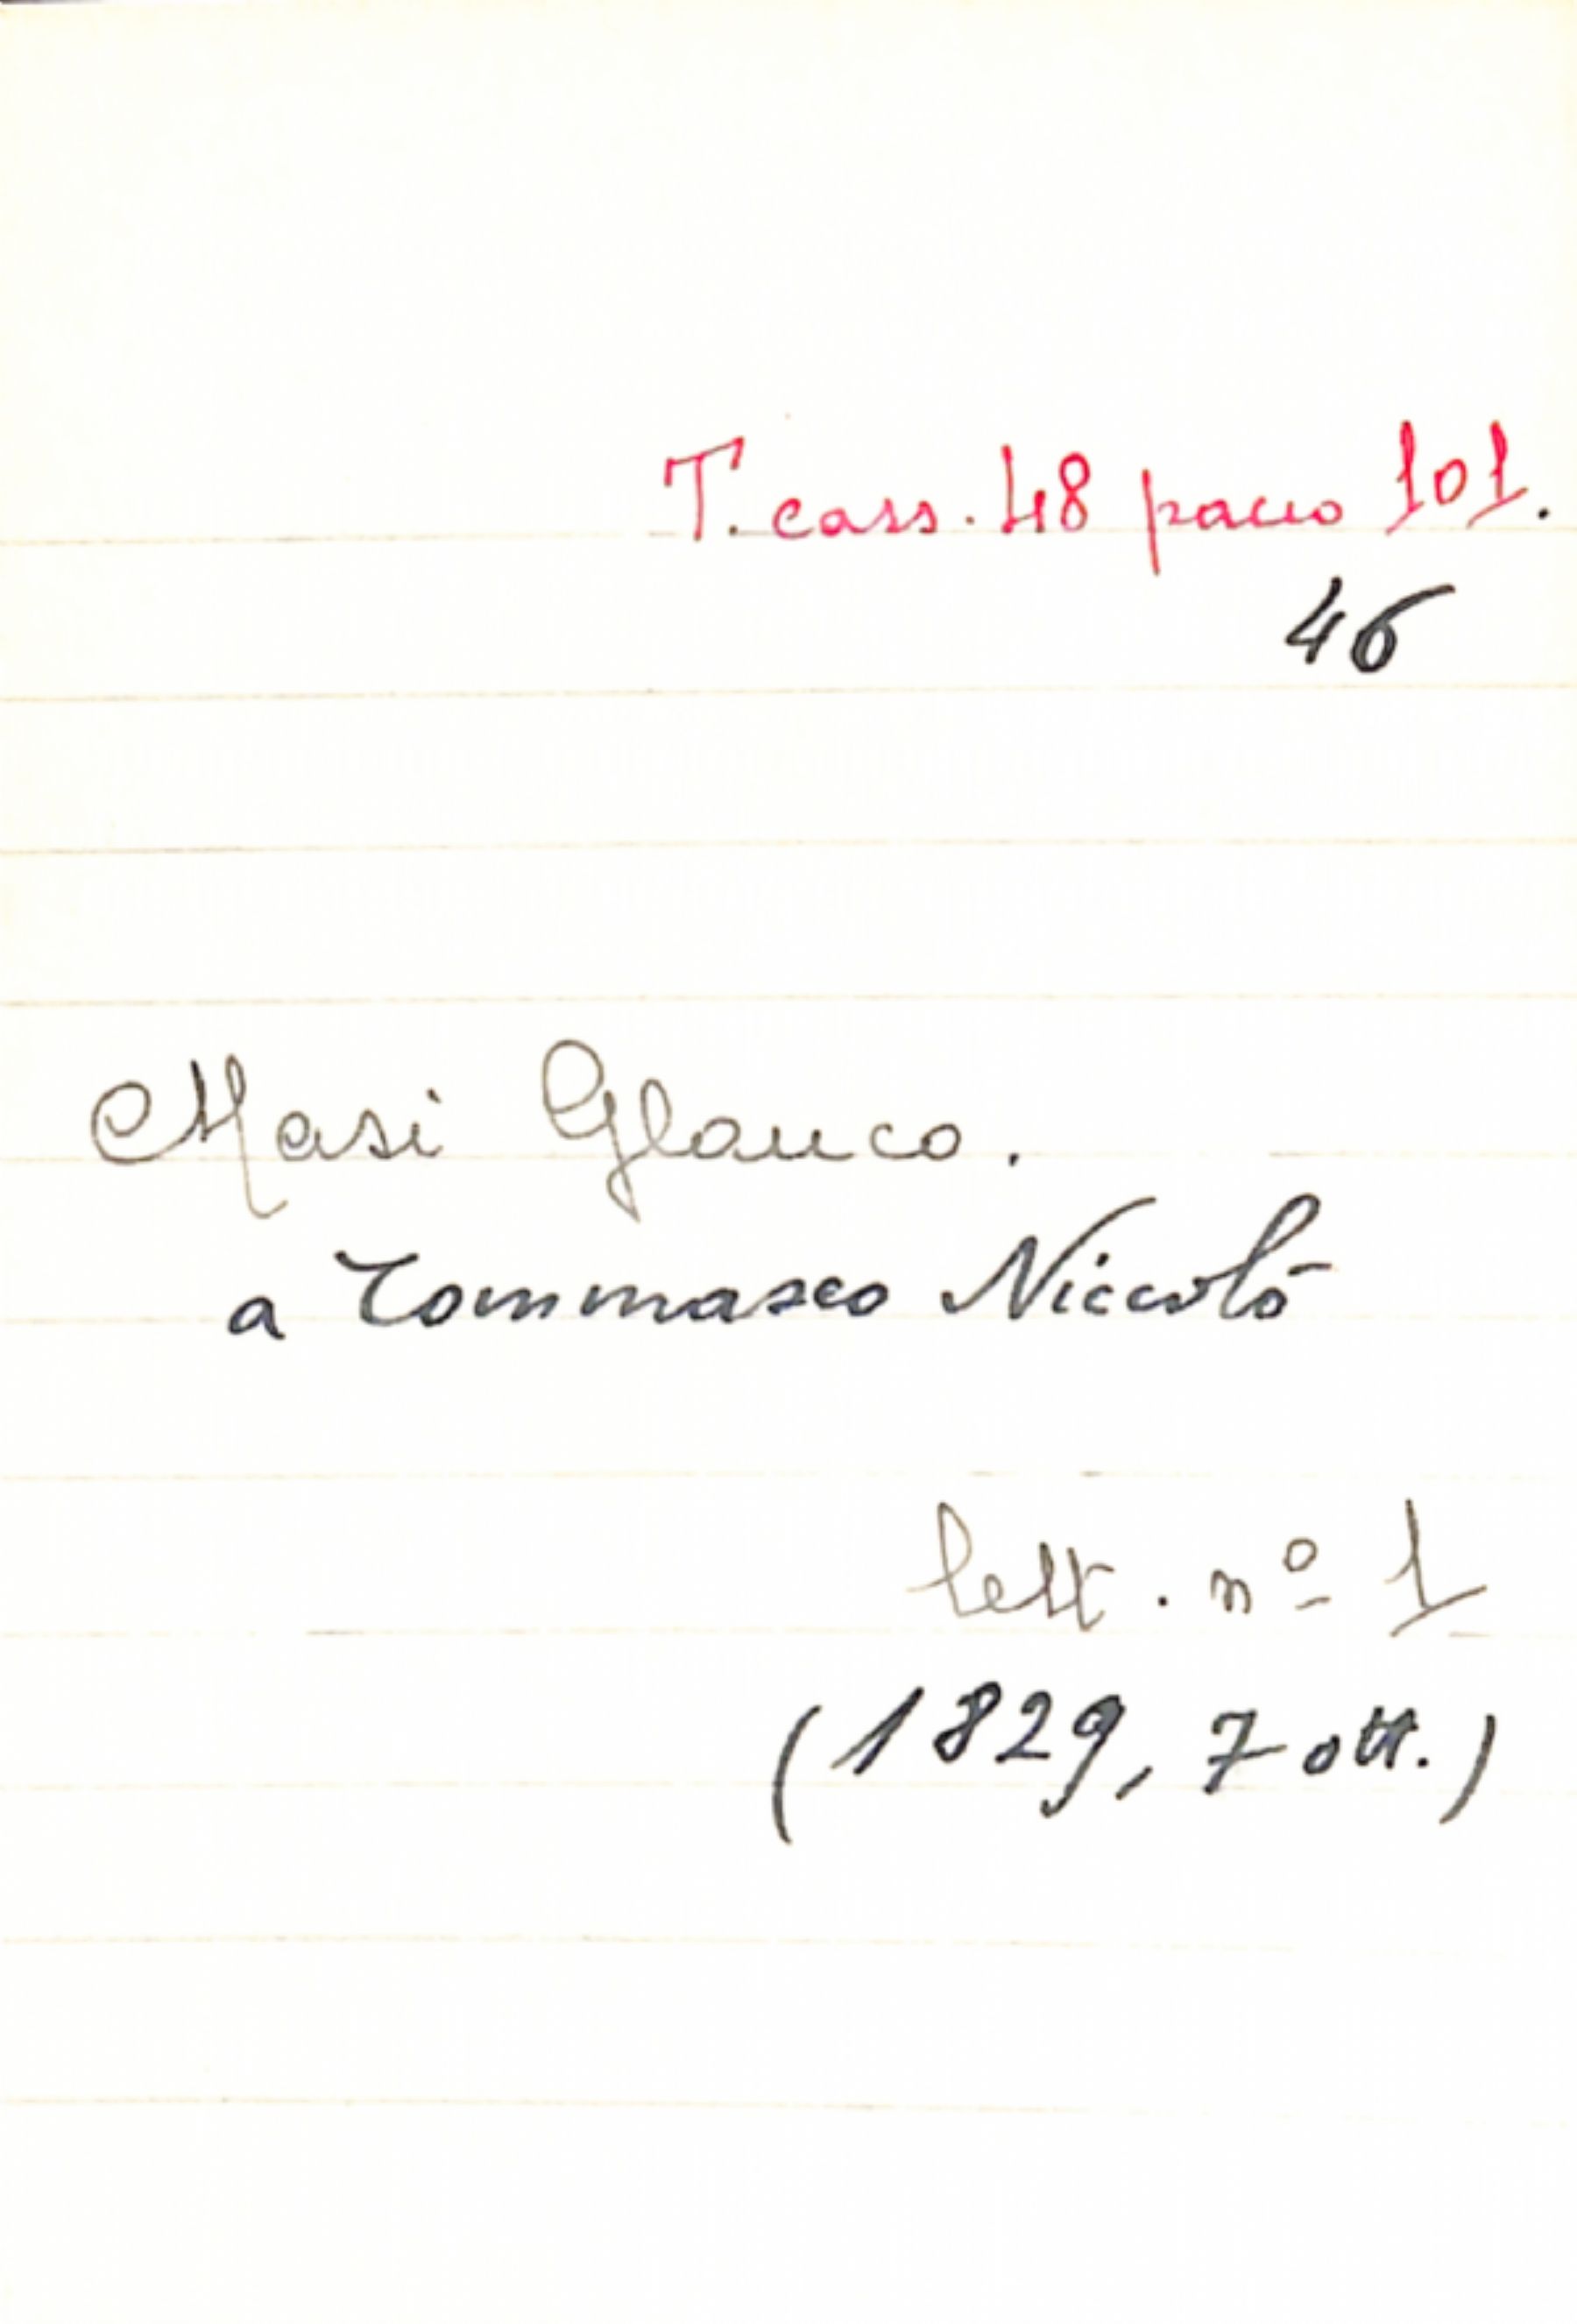 T. cass. 48 pacco 101.
46
Masi Glauco.
a Tommaseo Niccolò
lett. nº 1
(1829, 7 ott.)